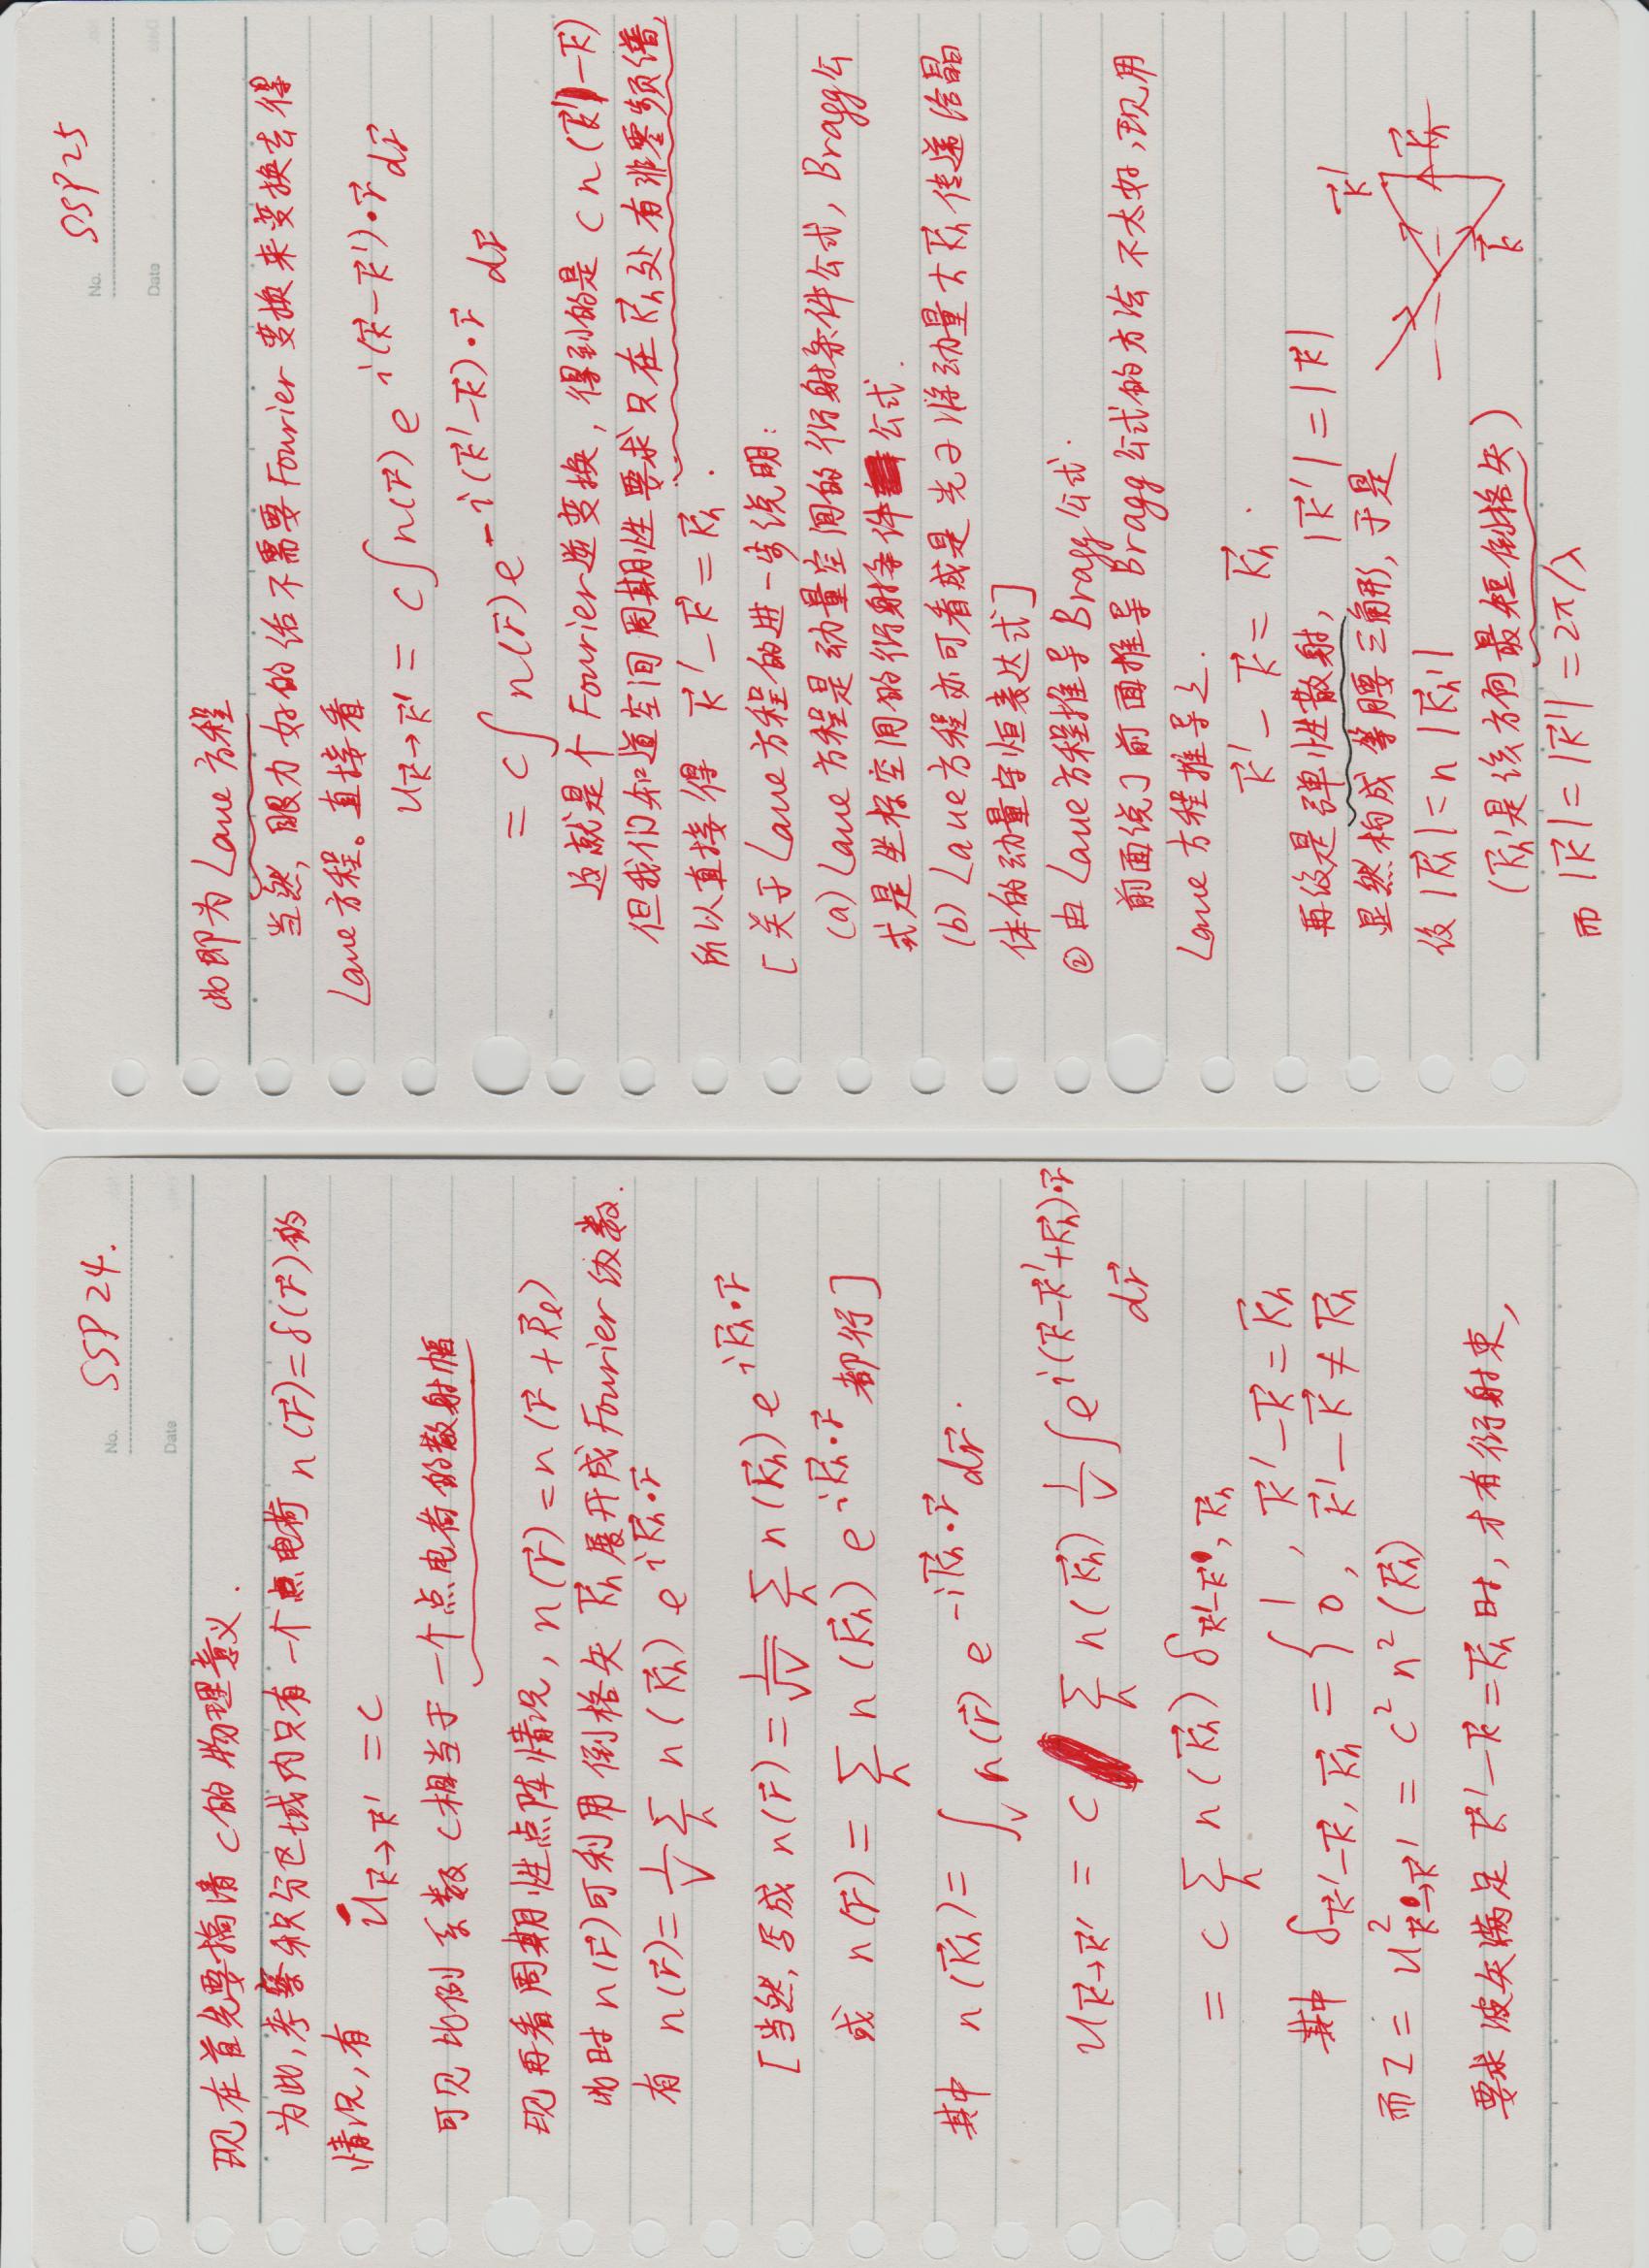 No. SSP 24.
Date
现在首先要搞清 c的物理意义.
为此,考察积分区域内只有一个点电荷 n(r⃗)=δ(r⃗)的
情况,有 u_{k⃗→k⃗'} = c
可见比例系数 c相当于一个点电荷的散射幅
现再看周期性点阵情况, n(r⃗)=n(r⃗+R⃗_l)
此时 n(r⃗)可利用倒格矢 K⃗_h 展开成 Fourier 级数.
有 n(r⃗)= 1/V Σ_h n(K⃗_h) e^{iK⃗_h·r⃗}
[当然,写成 n(r⃗)= 1/√V Σ_h n(K⃗_h) e^{iK⃗_h·r⃗}
或 n(r⃗) = Σ_h n(K⃗_h) e^{iK⃗_h·r⃗} 都行]
其中 n(K⃗_h)= ∫_V n(r⃗) e^{-iK⃗_h·r⃗} dr⃗.
u_{k⃗→k⃗'} = c Σ_h n(K⃗_h) 1/V ∫e^{i(k⃗-k⃗'+K⃗_h)·r⃗}
dr⃗
= c Σ_h n(K⃗_h) δ_{k⃗'-k⃗, K⃗_h}
其中 δ_{k⃗'-k⃗, K⃗_h} = { 1, k⃗'-k⃗=K⃗_h
0, k⃗'-k⃗≠K⃗_h
而I = u²_{k⃗→k⃗'} = c² n²(K⃗_h)
要求波矢满足 k⃗'-k⃗=K⃗_h时,才有衍射束,
No. SSP 25
Date
此即为 Laue 方程
当然,眼力好的话不需要 Fourier 变换来变换去得
Laue方程。直接看
u_{k⃗→k⃗'} = c∫n(r⃗) e^{i(k⃗-k⃗')·r⃗} dr⃗
= c∫ n(r⃗) e^{-i(k⃗'-k⃗)·r⃗} dr⃗
这就是个 Fourier逆变换,得到的是 c n(k⃗'-k⃗)
但我们知道空间周期性要求只在 K⃗_h处有非零频谱,
所以直接得 k⃗'-k⃗=K⃗_h.
[关于 Laue 方程的进一步说明:
(a) Laue 方程是动量空间的衍射条件公式, Bragg公
式是坐标空间的衍射条件公式.
(b) Laue方程亦可看成是光子将动量ħK⃗_h传递给晶
体的动量守恒表达式]
② 由 Laue方程推导 Bragg公式.
前面说了前面推导 Bragg公式的方法不太好,现用
Laue 方程推导之.
k⃗'-k⃗= K⃗_h.
再设是弹性散射, |k⃗'|=|k⃗|
显然构成等腰三角形,于是
设 |K⃗_h|=n |K⃗_h'|
(K⃗_h'是该方向最短倒格矢)
k⃗'
K⃗_h
k⃗
而 |k⃗|=|k⃗'|=2π/λ